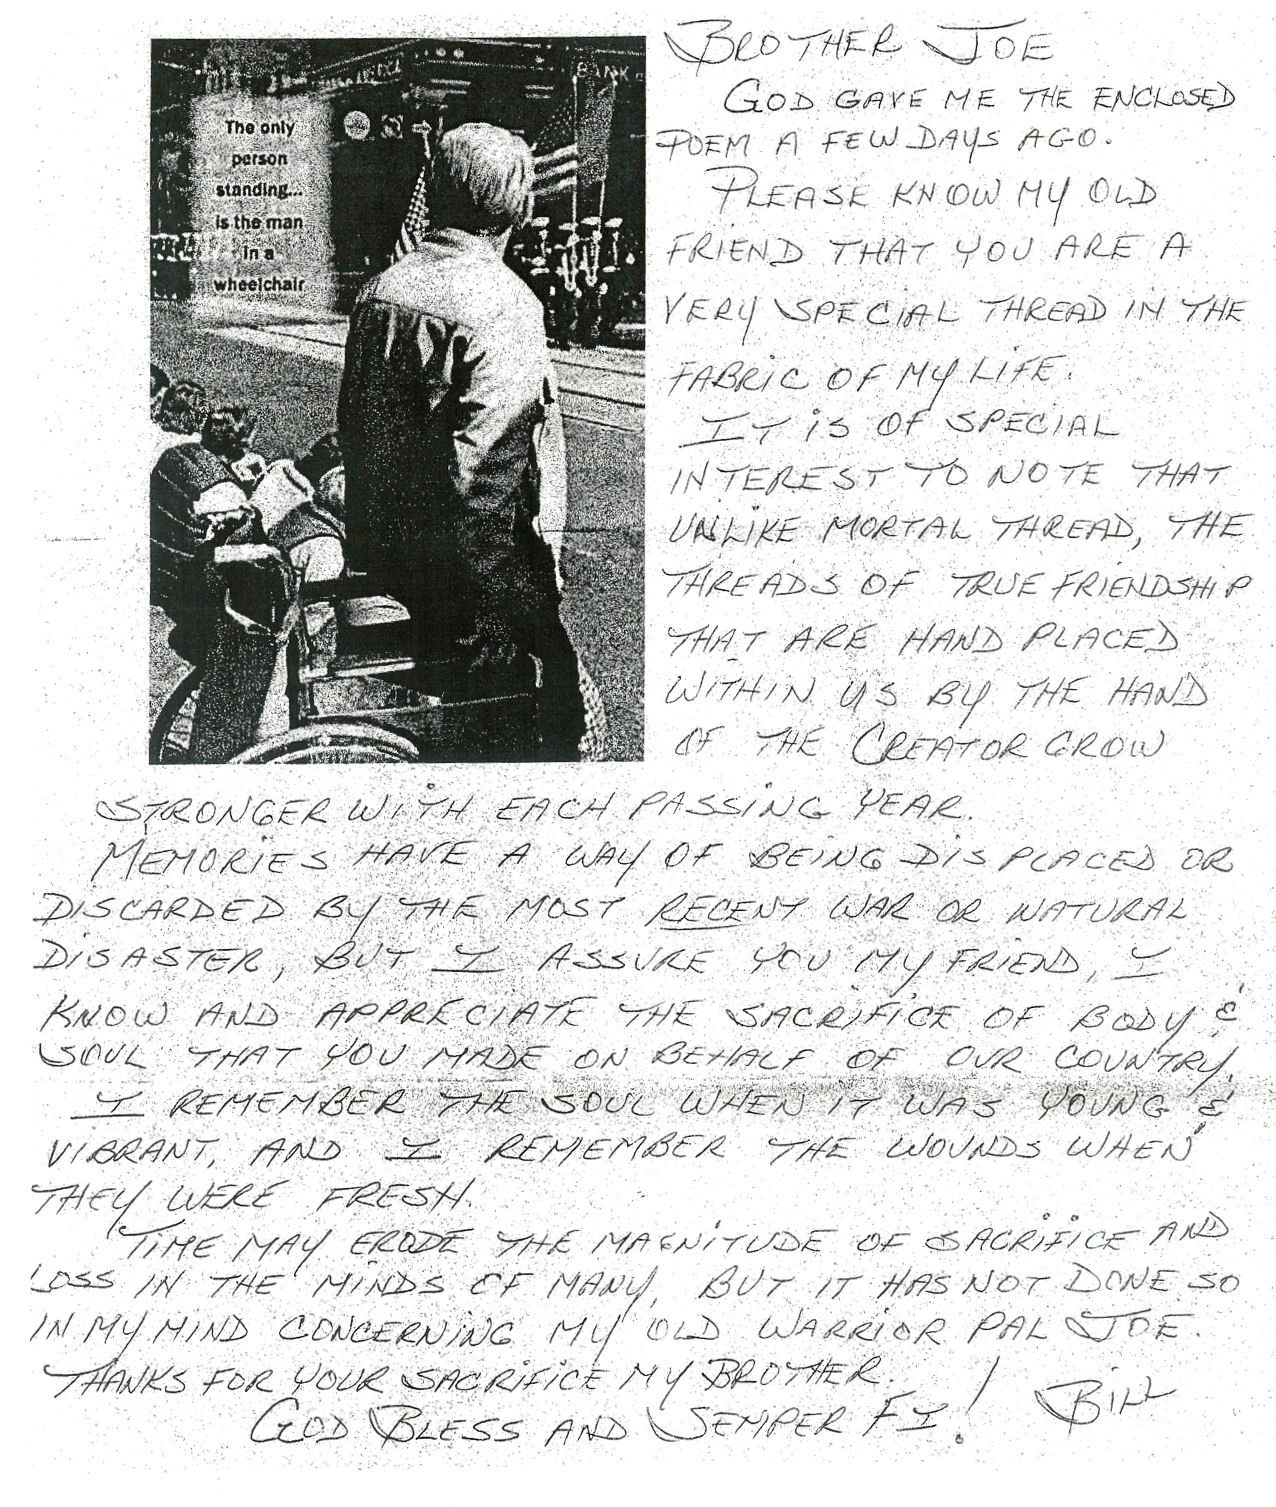 The only
person
standing...
is the man
in a
wheelchair
BANK
BROTHER JOE
GOD GAVE ME THE ENCLOSED
POEM A FEW DAYS AGO.
PLEASE KNOW MY OLD
FRIEND THAT YOU ARE A
VERY SPECIAL THREAD IN THE
FABRIC OF MY LIFE.
IT IS OF SPECIAL
INTEREST TO NOTE THAT
UNLIKE MORTAL THREAD, THE
THREADS OF TRUE FRIENDSHIP
THAT ARE HAND PLACED
WITHIN US BY THE HAND
OF THE CREATOR GROW
STRONGER WITH EACH PASSING YEAR.
MEMORIES HAVE A WAY OF BEING DISPLACED OR
DISCARDED BY THE MOST RECENT WAR OR NATURAL
DISASTER, BUT I ASSURE YOU MY FRIEND, I
KNOW AND APPRECIATE THE SACRIFICE OF BODY &
SOUL THAT YOU MADE ON BEHALF OF OUR COUNTRY.
I REMEMBER THE SOUL WHEN IT WAS YOUNG &
VIBRANT, AND I REMEMBER THE WOUNDS WHEN
THEY WERE FRESH.
TIME MAY ERODE THE MAGNITUDE OF SACRIFICE AND
LOSS IN THE MINDS OF MANY, BUT IT HAS NOT DONE SO
IN MY MIND CONCERNING MY OLD WARRIOR PAL JOE.
THANKS FOR YOUR SACRIFICE MY BROTHER.
GOD BLESS AND SEMPER FI! BILL